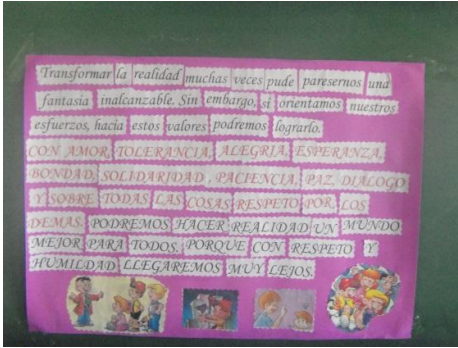 Transformar la realidad muchas veces pude paresernos una
fantasia inalcanzable. Sin embargo, si orientamos nuestros
esfuerzos, hacia estos valores podremos lograrlo.
CON AMOR, TOLERANCIA, ALEGRIA, ESPERANZA,
BONDAD, SOLIDARIDAD, PACIENCIA, PAZ, DIALOGO
Y SOBRE TODAS LAS COSAS RESPETO POR LOS
DEMAS. PODREMOS HACER REALIDAD UN MUNDO
MEJOR PARA TODOS, PORQUE CON RESPETO Y
HUMILDAD LLEGAREMOS MUY LEJOS.